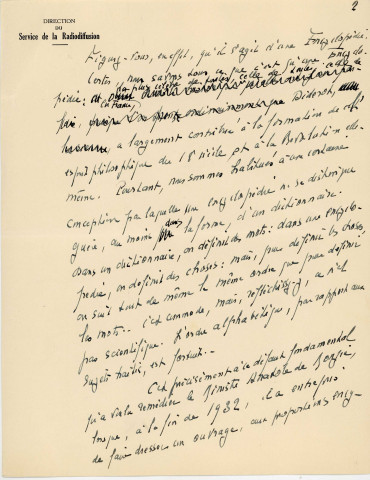 DIRECTION
DU
Service de la Radiodiffusion
2
Figurez-vous, en effet, qu'il s'agit d'une Encyclopédie.
Certes, nous savons tous ce que c'est qu'une encyclo-
pédie : la plus célèbre de toutes, celle de
Diderot,
a largement contribué à la formation de cet
esprit philosophique du 18e siècle et à la Révolution elle-
même. Pourtant, nous sommes habitués à une certaine
conception par laquelle une encyclopédie ne se distingue
guère, au moins dans la forme, d'un dictionnaire.
Dans un dictionnaire, on définit des mots : dans une encyclo-
pédie, on définit des choses : mais, pour définir les choses,
on suit tout de même le même ordre que pour définir
les mots. C'est commode, mais, réfléchissez-y, ce n'est
pas scientifique. L'ordre alphabétique, par rapport aux
sujets traités, est fortuit.
C'est précisément à ce défaut fondamental
qu'a voulu remédier le Ministre Anatole de Monzie,
lorsque, à la fin de 1932, il a entrepris
de faire dresser un ouvrage, aux proportions ency-